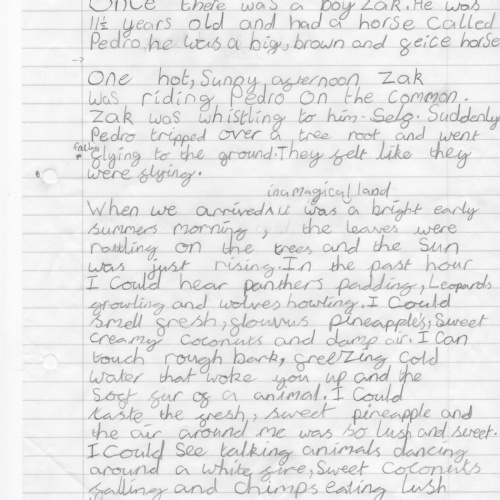 Once there was a boy Zak. He was
11½ years old and had a horse called
Pedro, he was a big, brown and geice horse
One hot, Sunny afternoon Zak
was riding Pedro on the common.
Zak was whistling to him-Self. Suddenly
Pedro tripped over a tree root and went
falling
* flying to the ground. They felt like they
were flying.
in a magical land
When we arrived ʌ it was a bright early
summers morning, the leaves were
rattling on the trees and the Sun
was just rising. In the past hour
I Could hear panthers padding, Leopards
growling and wolves howling. I Could
Smell fresh, glouvus pineapple's, Sweet
Creamy Coconuts and damp air. I Can
touch rough bark, freezing Cold
Water that woke you up and the
Soft fur of a animal. I Could
taste the fresh, sweet pineapple and
the air around me was so lush and sweet.
I Could See talking animals dancing
around a white fire, Sweet Coconuts
falling and Chimps eating lush